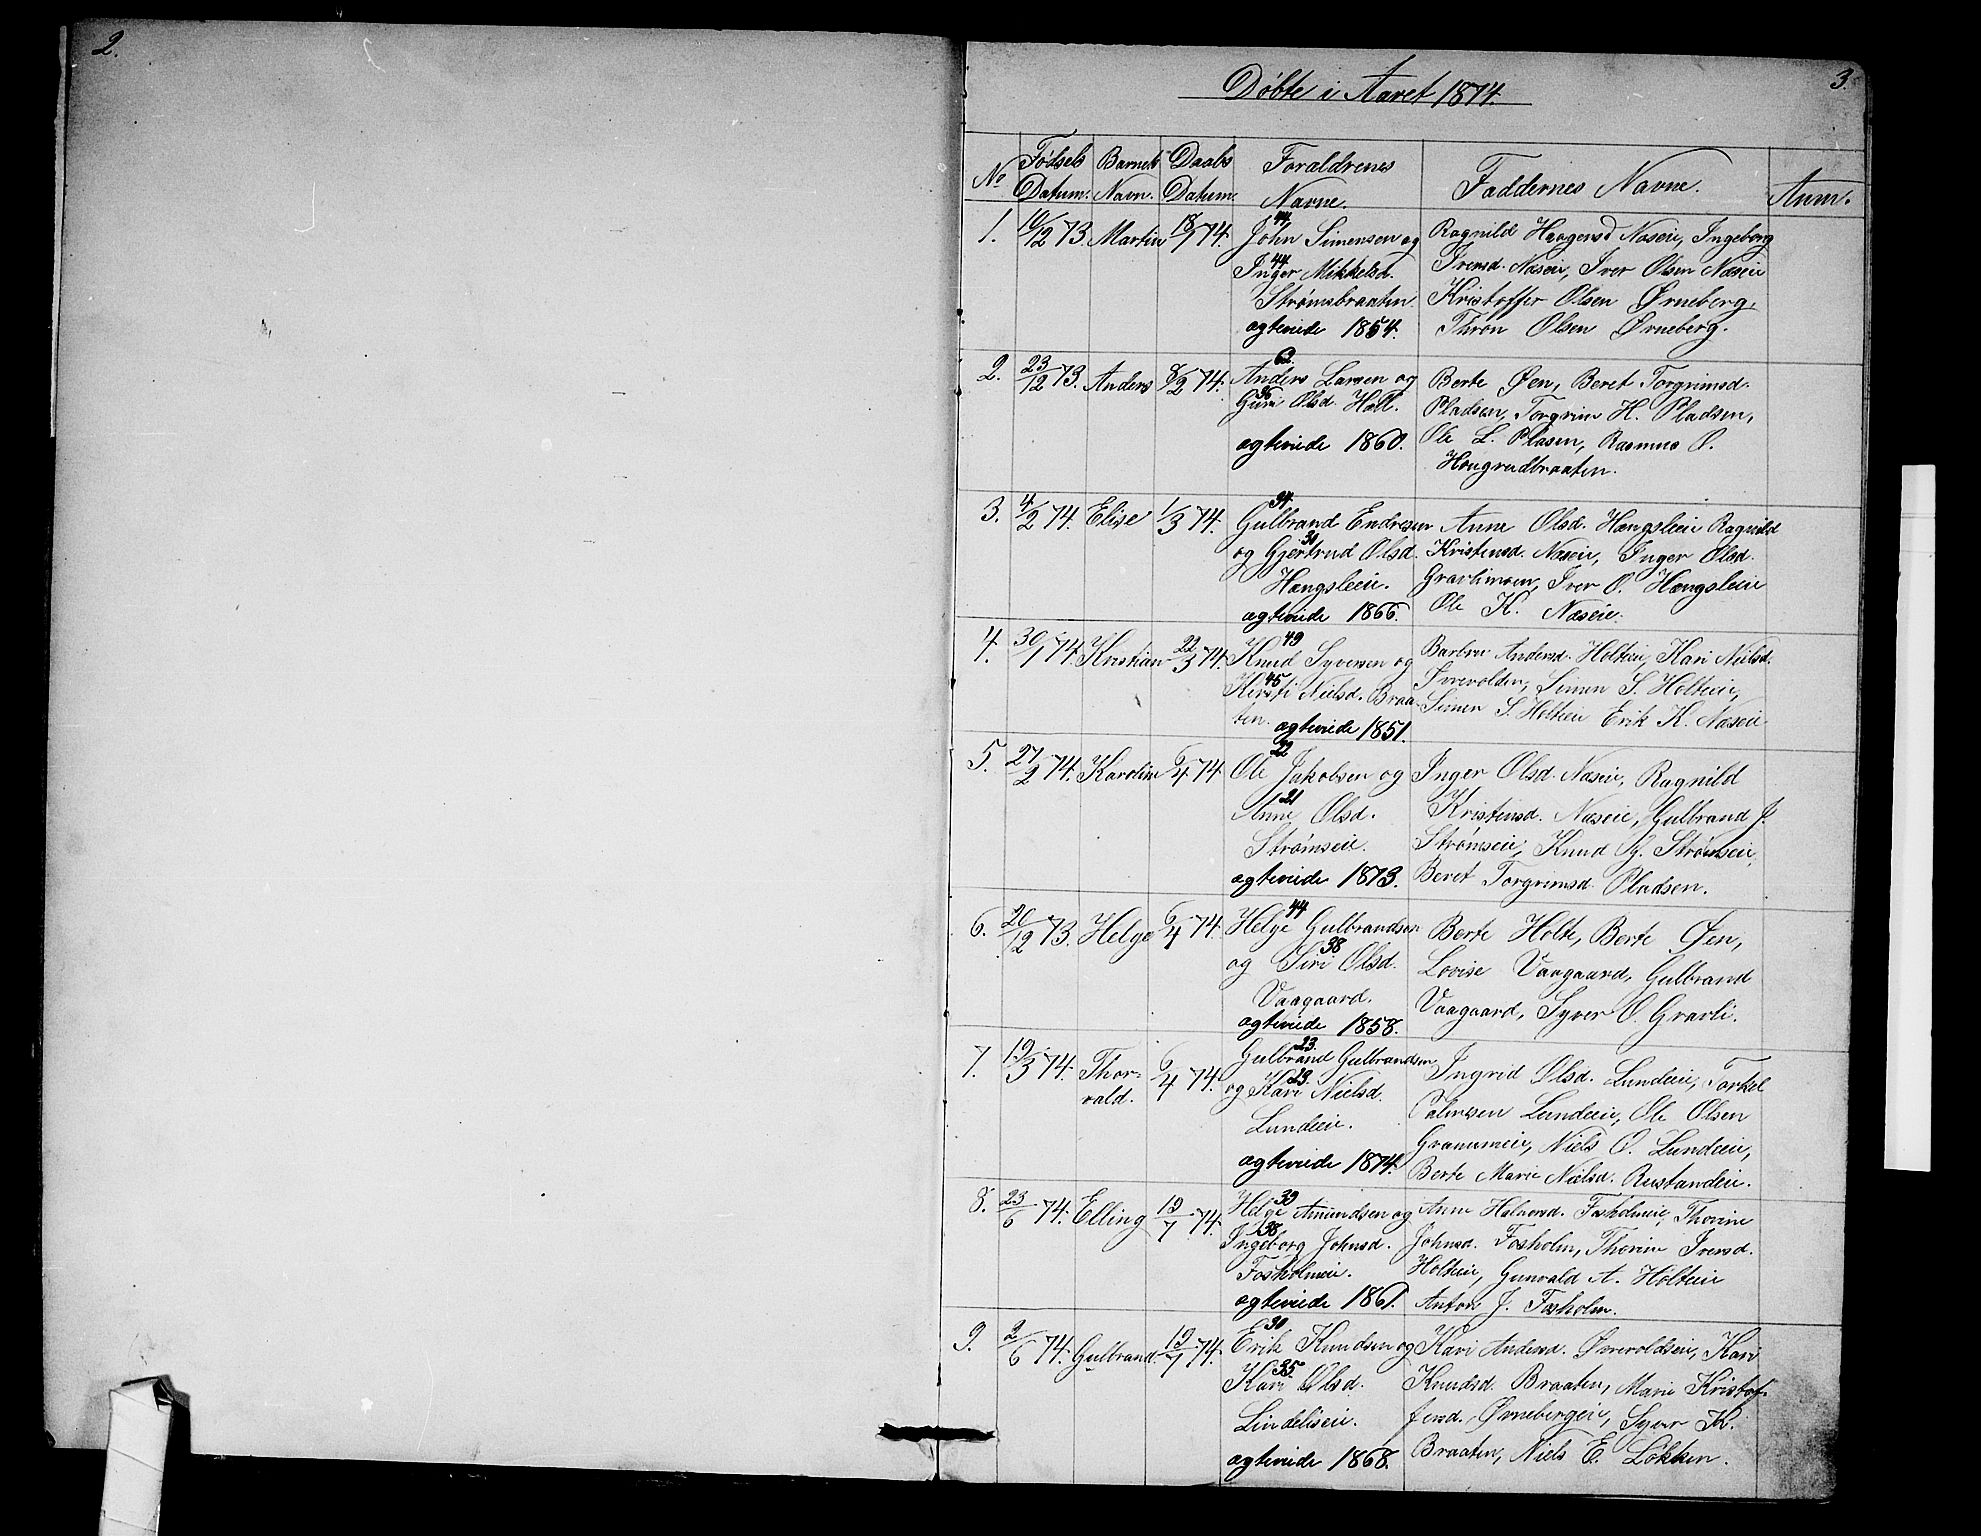 2.
3.
Døbte i Aaret 1874.
No Fødsels Datum. Barnets Navn. Daabs Datum. Foraldrenes Navne. Faddernes Navne. Anm.
1. 10/12 73 Martin 18/1 74.
44.
John Simensen og
44.
Inger Mikkelsd.
Strømsbraaten.
ægteviede 1854.
Ragnild Haagensd Næseie, Ingeborg
Iversd. Næseie, Iver Olsen Næseie
Kristoffer Olsen Ørneberg,
Thron Olsen Ørneberg.
2. 23/12 73. Anders 8/2 74.
62.
Anders Larsen og
36
Guri Olsd. Hall.
ægteviede 1860.
Berte Øen, Beret Torgrimsd.
Pladsen, Torgrim H. Pladsen,
Ole L. Plasen, Rasmus O.
Haugrudbraaten.
3. 4/2 74. Elise 1/3 74.
34.
Gulbrand Endresen
31
og Gjertrud Olsd.
Hængsleeie.
ægteviede 1866.
Anne Olsd. Hængsleeie Ragnild
Kristensd. Næseie, Inger Olsd.
Gravlimoen, Iver O. Hængsleeie
Ole K. Næseie.
4. 30/1 74. Kristian 22/3 74.
49
Knud Syversen og
45
Kersti Nielsd. Braa-
ten. ægteviede 1851.
Barbro Andersd. Holteie, Kari Nielsd.
Simen S. Holteie,
Simen S. Holteie Erik K. Næseie
5. 27/2 74. Karoline 6/4 74
22
Ole Jakobsen og
21
Anne Olsd.
Strømseie.
ægteviede 1873.
Inger Olsd. Næseie, Ragnild
Kristensd. Næseie, Gulbrand J.
Strømseie, Knud G. Strømseie,
Beret Torgrimsd. Pladsen.
6. 20/12 73. Helge 6/4 74.
44
Helge Gulbrandsen
38
og Siri Olsd.
Vaagaard.
ægteviede 1858.
Berte Holte, Berte Øen,
Lovise Vaagaard, Gulbrand
Vaagaard, Syver O. Gravli.
7. 19/3 74. Thor-
vald. 6/4 74.
23.
Gulbrand Gulbrandsen
23.
og Kari Nielsd.
Lundeeie.
ægteviede 1874.
Ingrid Olsd. Lundeeie, Torkel
Lundeeie, Ole Olsen
Granumeie, Niels O. Lundeeie,
Berte Marie Nielsd. Rustandeie.
8. 23/6 74. Elling 19/7 74.
39
Helge Amundsen og
38
Ingeborg Johnsd.
Fosholmeie.
ægteviede 1861.
Anne Halvorsd. Fosholmeie, Thorine
Johnsd. Fosholm, Thorine Iversd.
Holteie, Gunvald A. Holteie
Anton J. Fosholm.
9. 2/6 74. Gulbrand. 19/7 74.
30
Erik Knudsen og
35
Kari Olsd.
Lindeliseie.
ægteviede 1868.
Kari Andersd. Ørevoldseie, Kari
Knudsd. Braaten, Marie Kristof-
fersd. Ørnebergeie, Syver K.
Braaten, Niels E. Løkken.